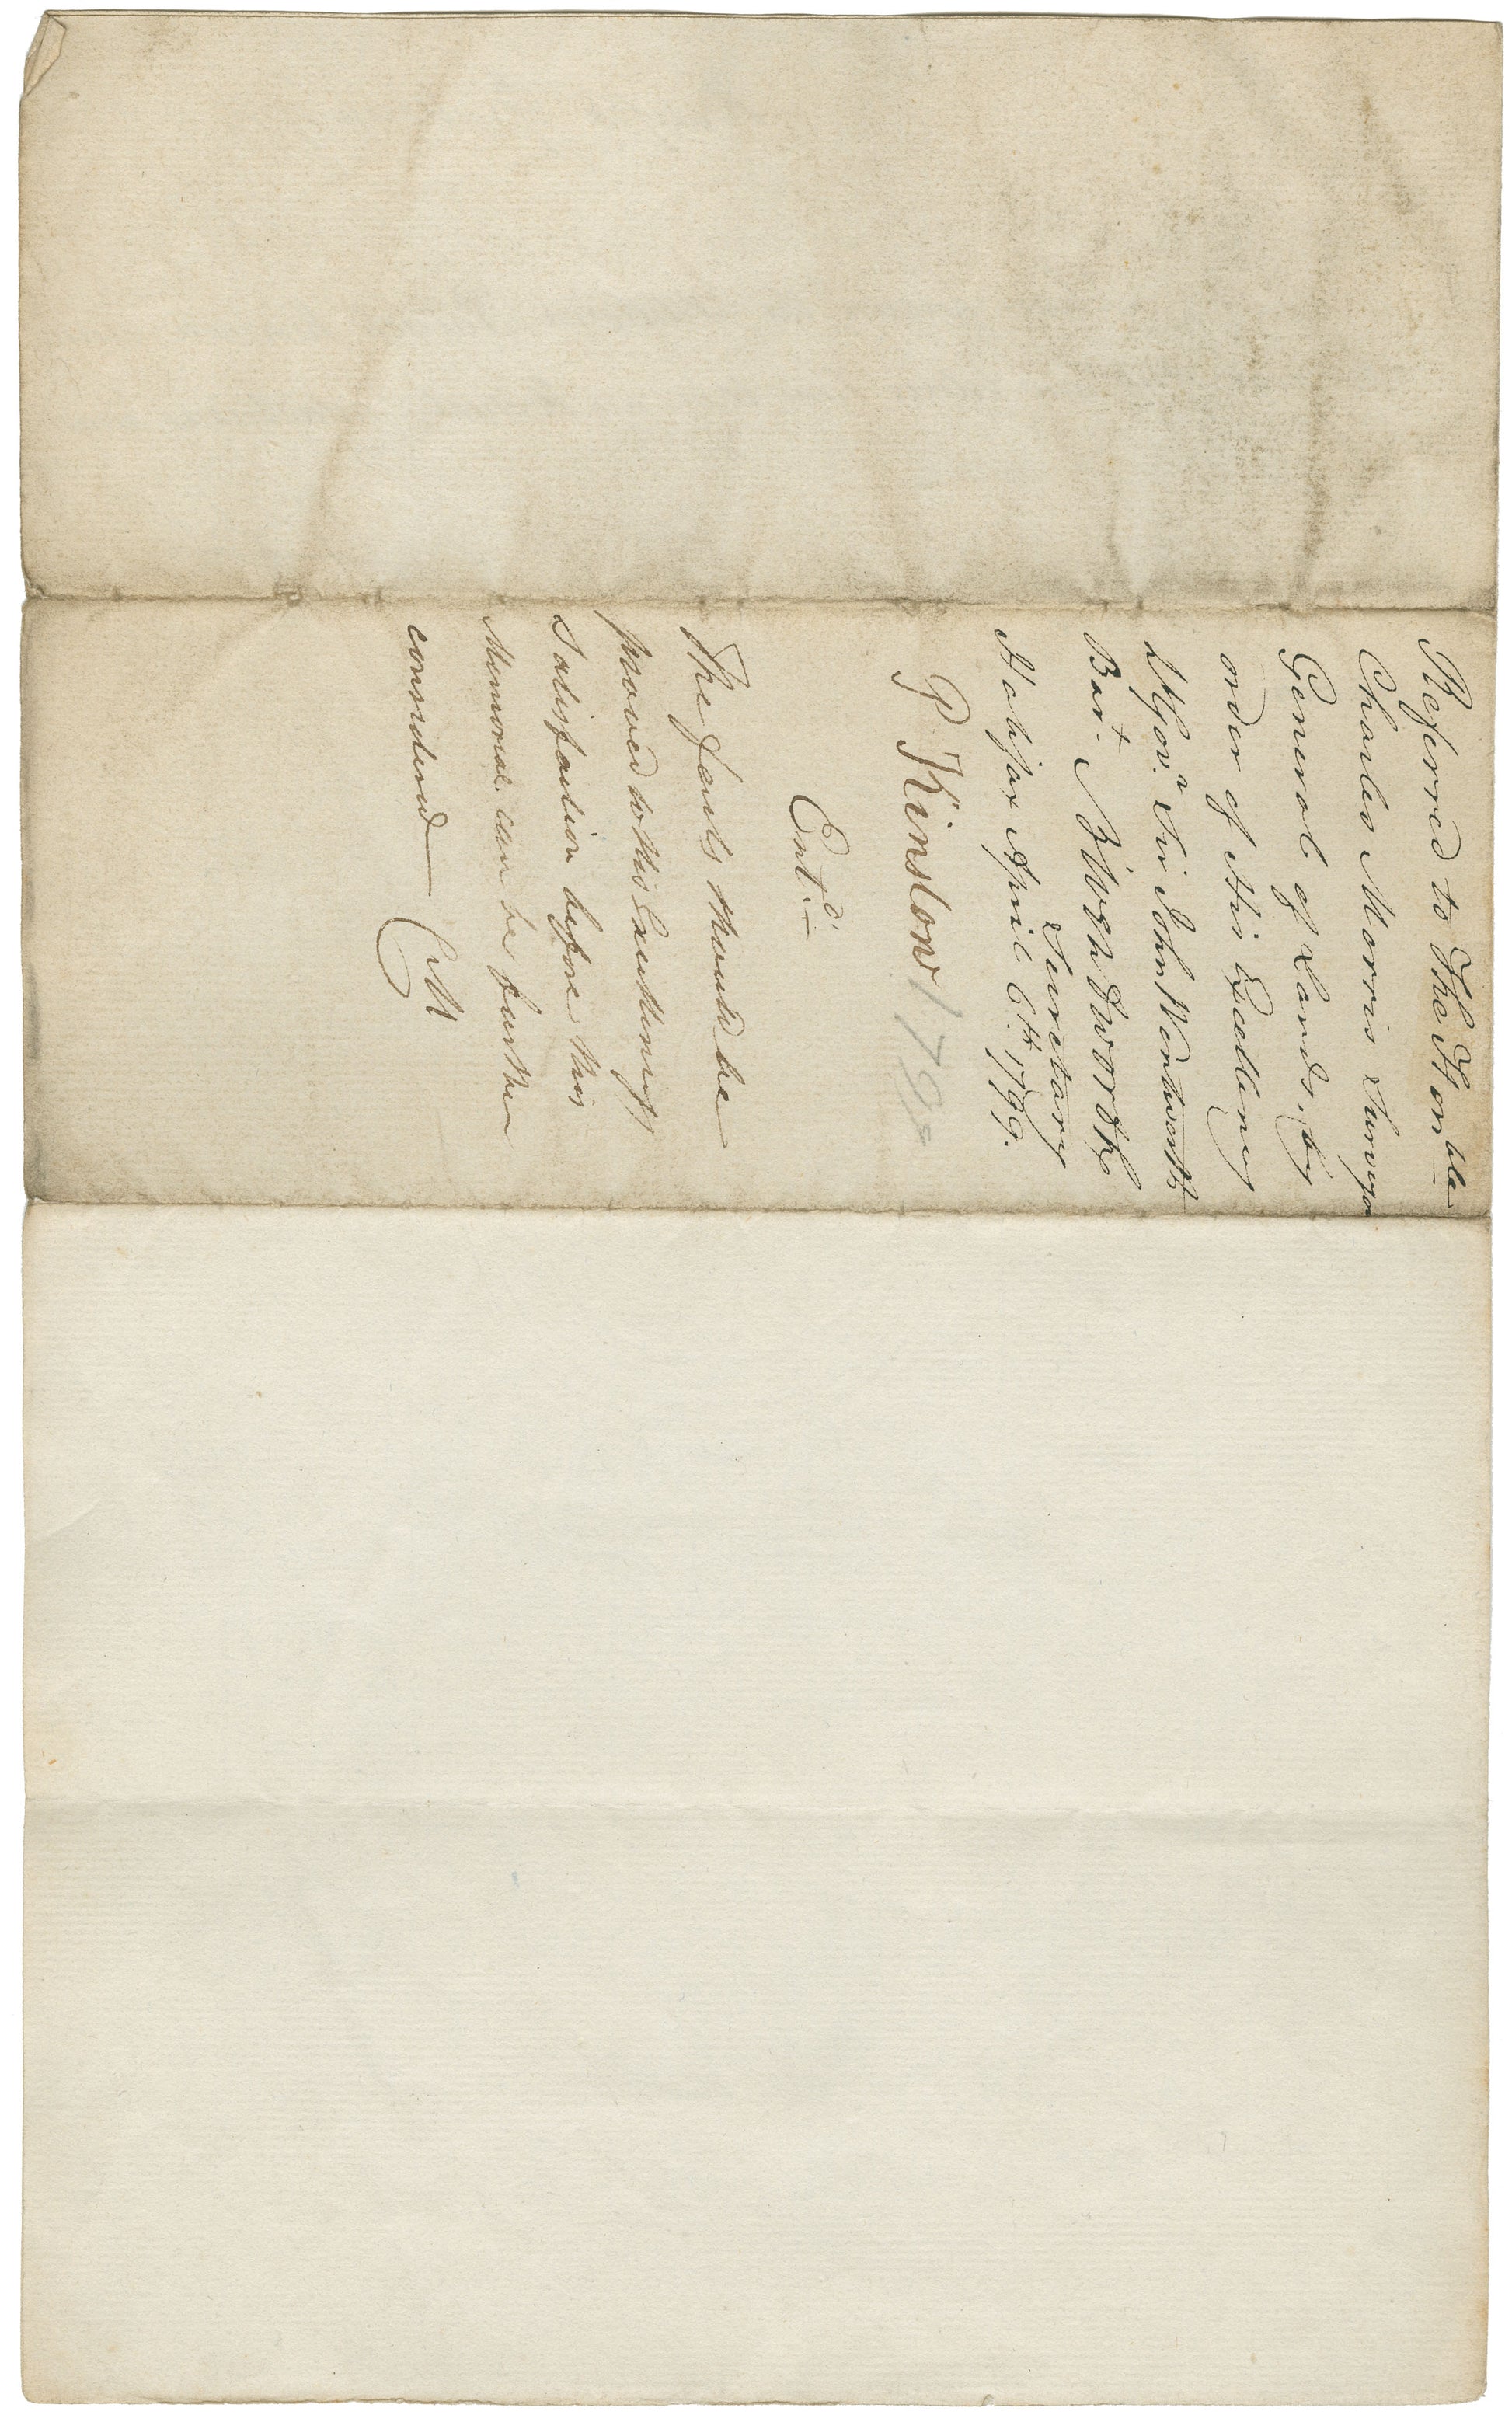 Referred to The Honble
Charles Morris Surveyor
General of Lands, by
order of His Excellency
Lt Govr Sir John Wentworth
Bart B Wentworth
Secretary
Halifax April 6th 1799.
P Kinslow 1799
Entd
The facts should be
proved to His Excellency's
Satisfaction before this
Memorial can be further
considered
CM